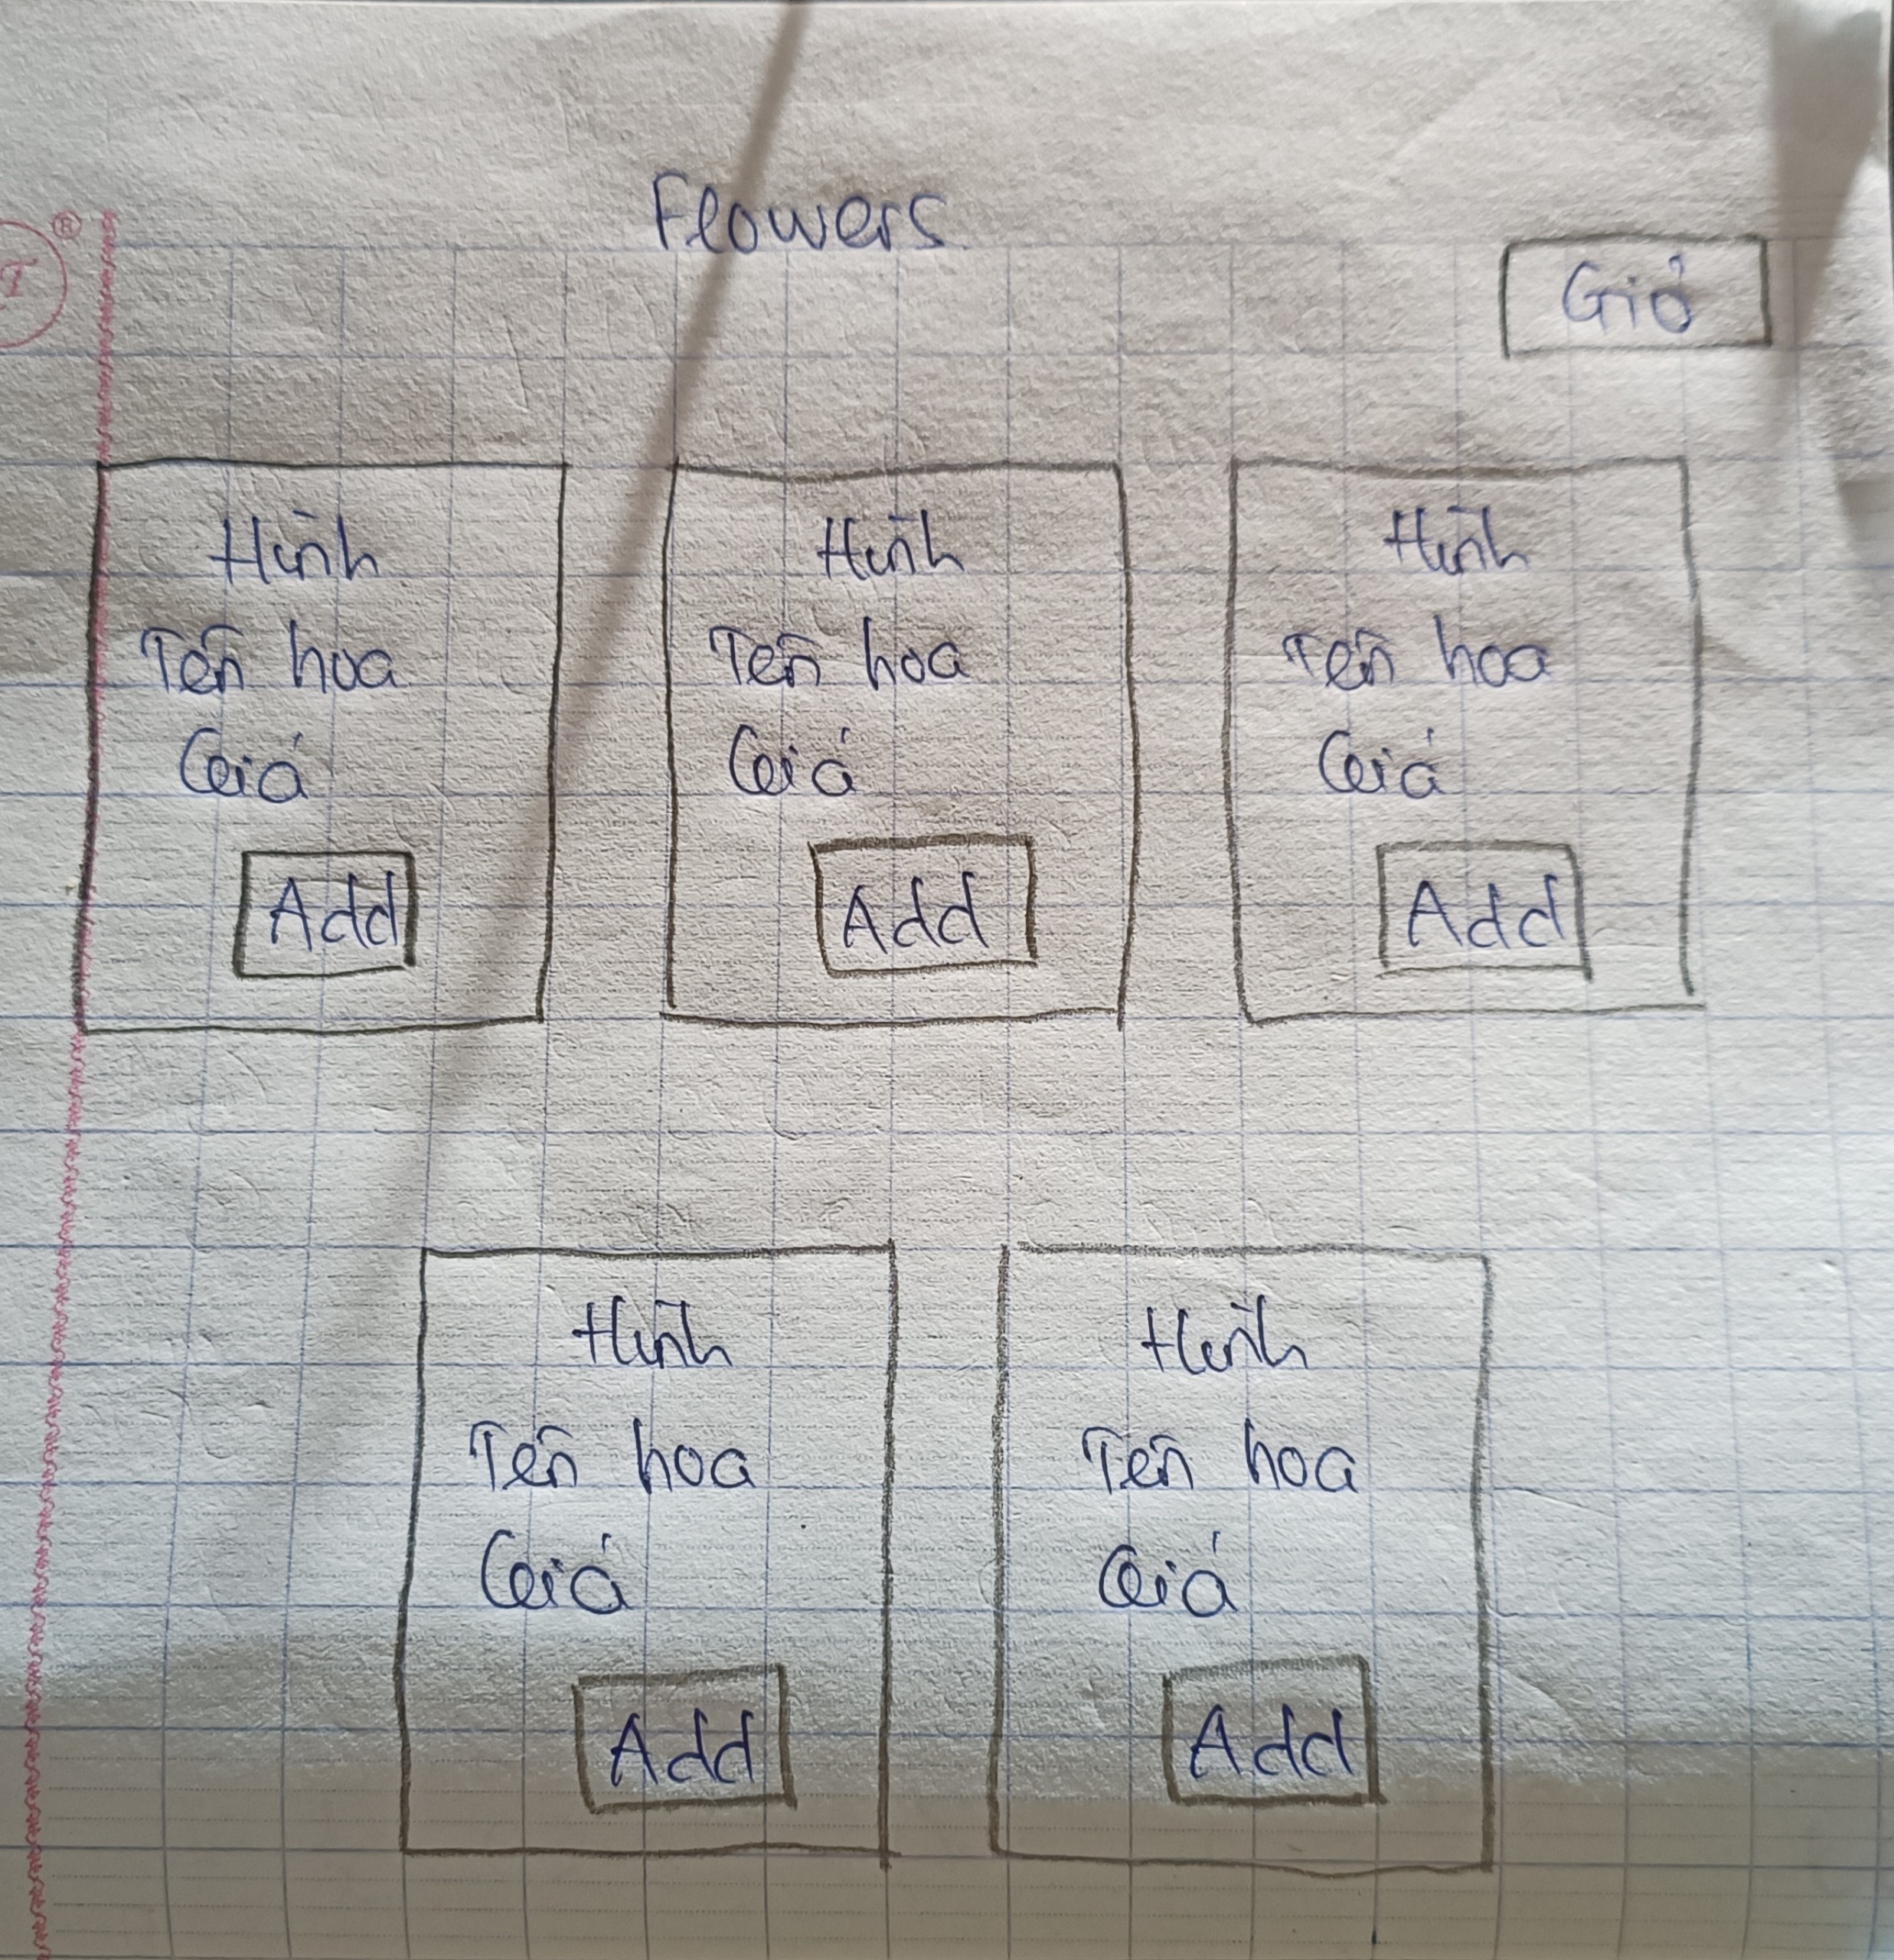 Flowers
Giỏ
Hình
Tên hoa
Giá
Add
Hình
Tên hoa
Giá
Add
Hình
Tên hoa
Giá
Add
Hình
Tên hoa
Giá
Add
Hình
Tên hoa
Giá
Add